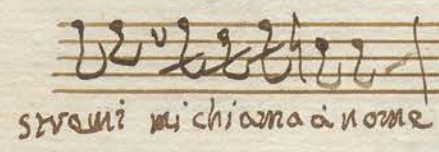 stremi mi chiama à nome